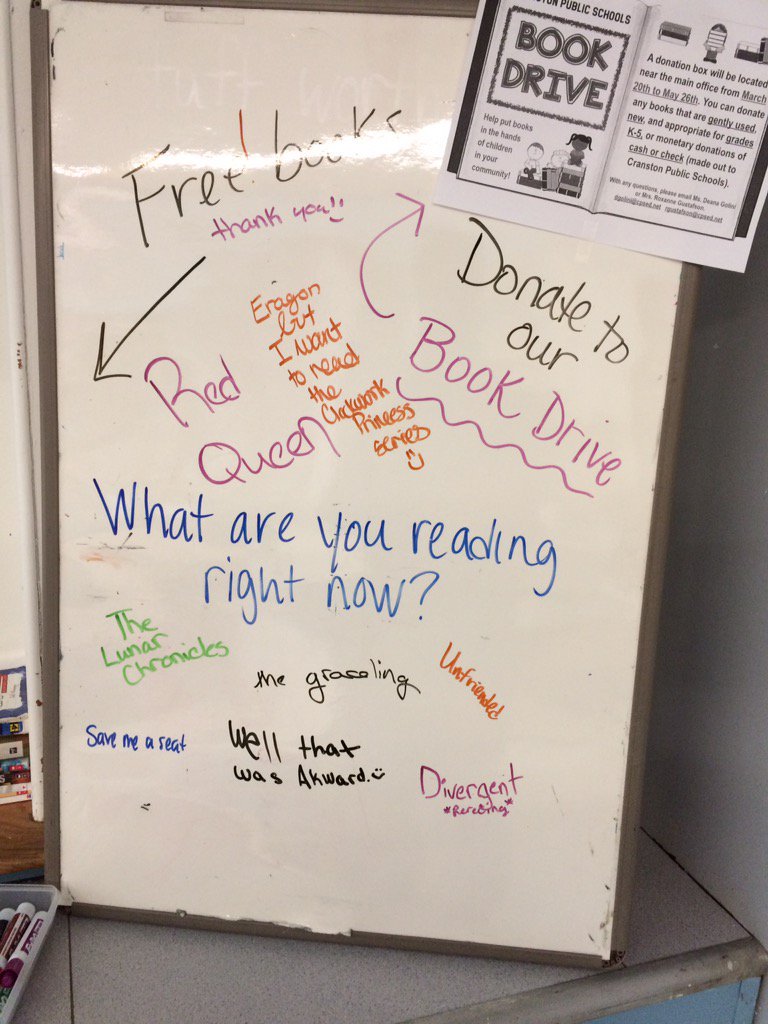 CRANSTON PUBLIC SCHOOLS
BOOK
DRIVE
Help put books
in the hands
of children
in your
community!
A donation box will be located
near the main office from March
20th to May 26th. You can donate
any books that are gently used,
new, and appropriate for grades
K-5, or monetary donations of
cash or check (made out to
Cranston Public Schools).
With any questions, please email Ms. Deana Golini
or Mrs. Roxanne Gustafson.
dgolini@cpsed.net rgustafson@cpsed.net
Free! books
thank you!
Donate to
our
BOOK Drive
Eragon
but
I want
to read
the
Clockwork
Princess
series
Red
Queen
What are you reading
right now?
The
Lunar
Chronicles
the graceling
Unfriended
Save me a seat
Well that
was Akward.
Divergent